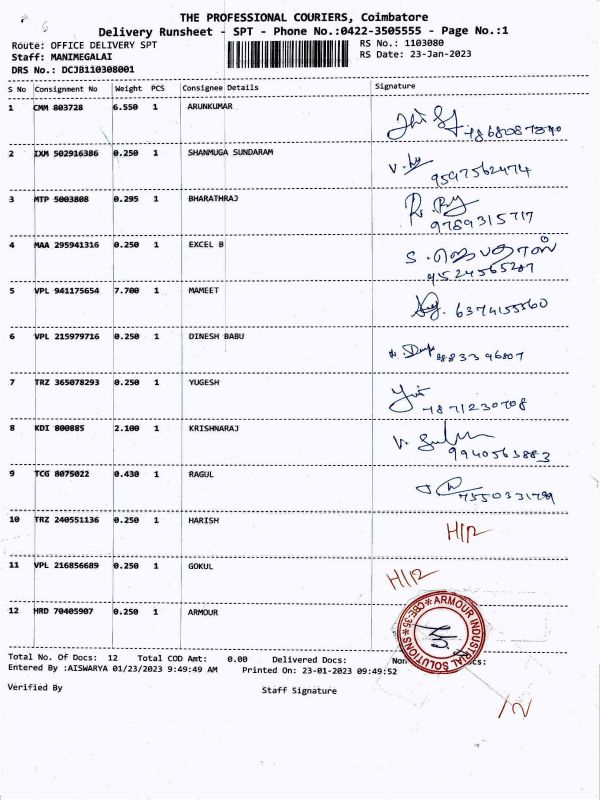 THE PROFESSIONAL COURIERS, Coimbatore
Delivery Runsheet - SPT - Phone No.:0422-3505555 - Page No.:1
Route: OFFICE DELIVERY SPT
Staff: MANIMEGALAI
DRS No.: DCJB110308001
RS No.: 1103080
RS Date: 23-Jan-2023
S No Consignment No Weight PCS Consignee Details Signature
1 CMM 803728 6.550 1 ARUNKUMAR
2 IXM 502916386 0.250 1 SHANMUGA SUNDARAM
9597562474
3 MTP 5003808 0.295 1 BHARATHRAJ
9789315717
4 MAA 295941316 0.250 1 EXCEL B
9524565287
5 VPL 941175654 7.700 1 MAMEET
6374155560
6 VPL 215979716 0.250 1 DINESH BABU
8833 96807
7 TRZ 365078293 0.250 1 YUGESH
7871230708
8 KDI 800885 2.100 1 KRISHNARAJ
9940563883
9 TCG 8075022 0.430 1 RAGUL
10 TRZ 240551136 0.250 1 HARISH
H/R
11 VPL 216856689 0.250 1 GOKUL
H/R
12 HRD 70405907 0.250 1 ARMOUR
ARMOUR INDUSTRIAL SOLUTIONS * CBE-35 *
Total No. Of Docs: 12 Total COD Amt: 0.00 Delivered Docs: Non
Entered By :AISWARYA 01/23/2023 9:49:49 AM Printed On: 23-01-2023 09:49:52
Verified By Staff Signature